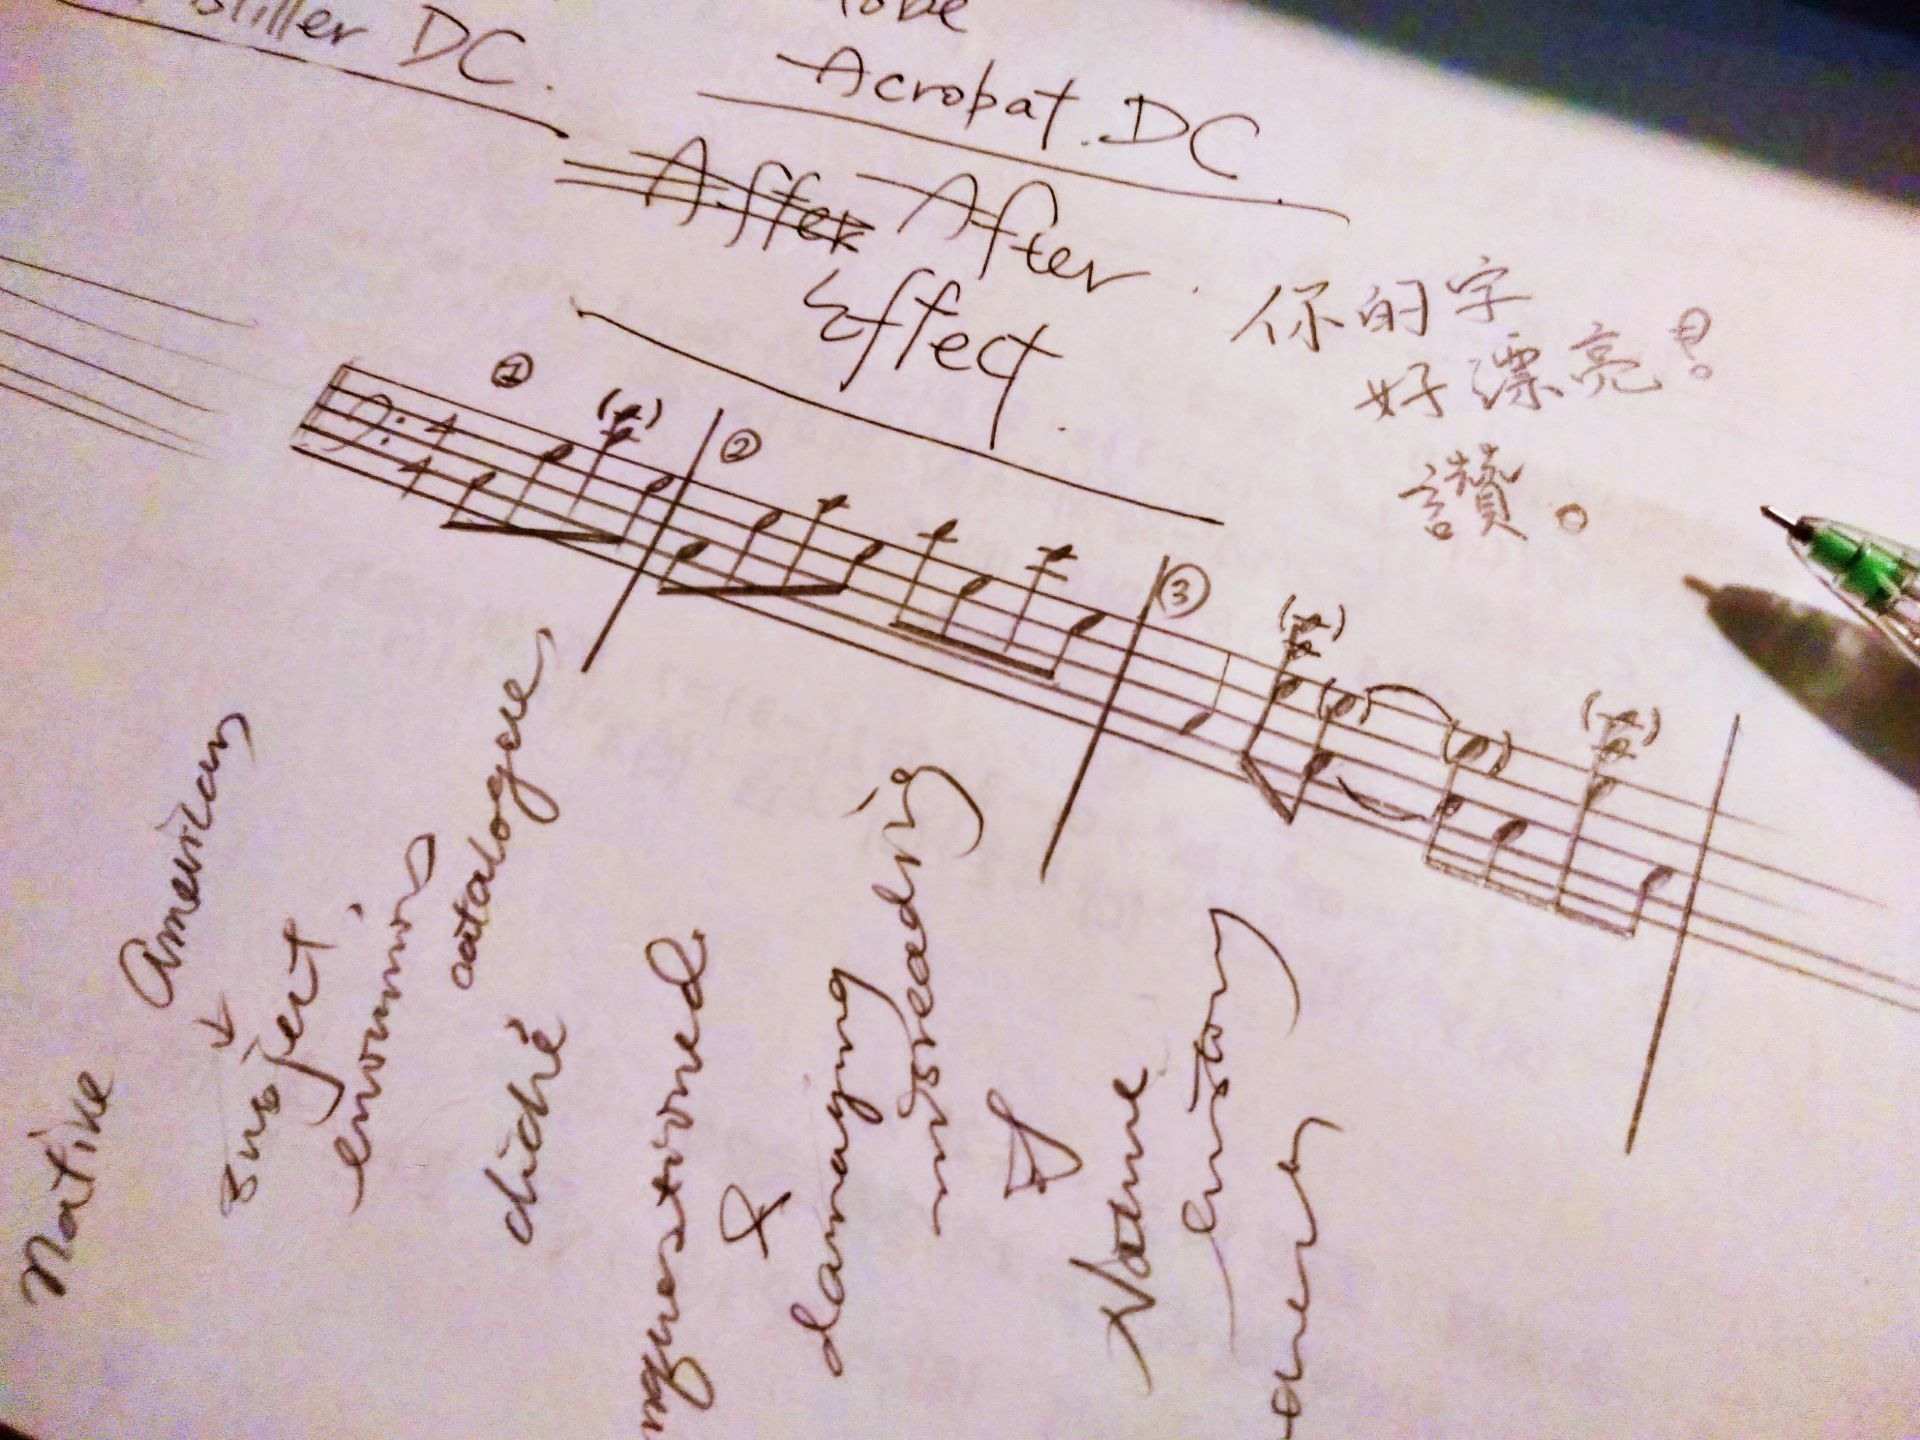 stiller DC.
Acrobat DC
After
Effect
你的字
好漂亮!
讚。
①
②
③
4
4
Native
American
subject,
enormous
catalogue
cliché
unquestioned
&
damaging
misreading
of
Native
history